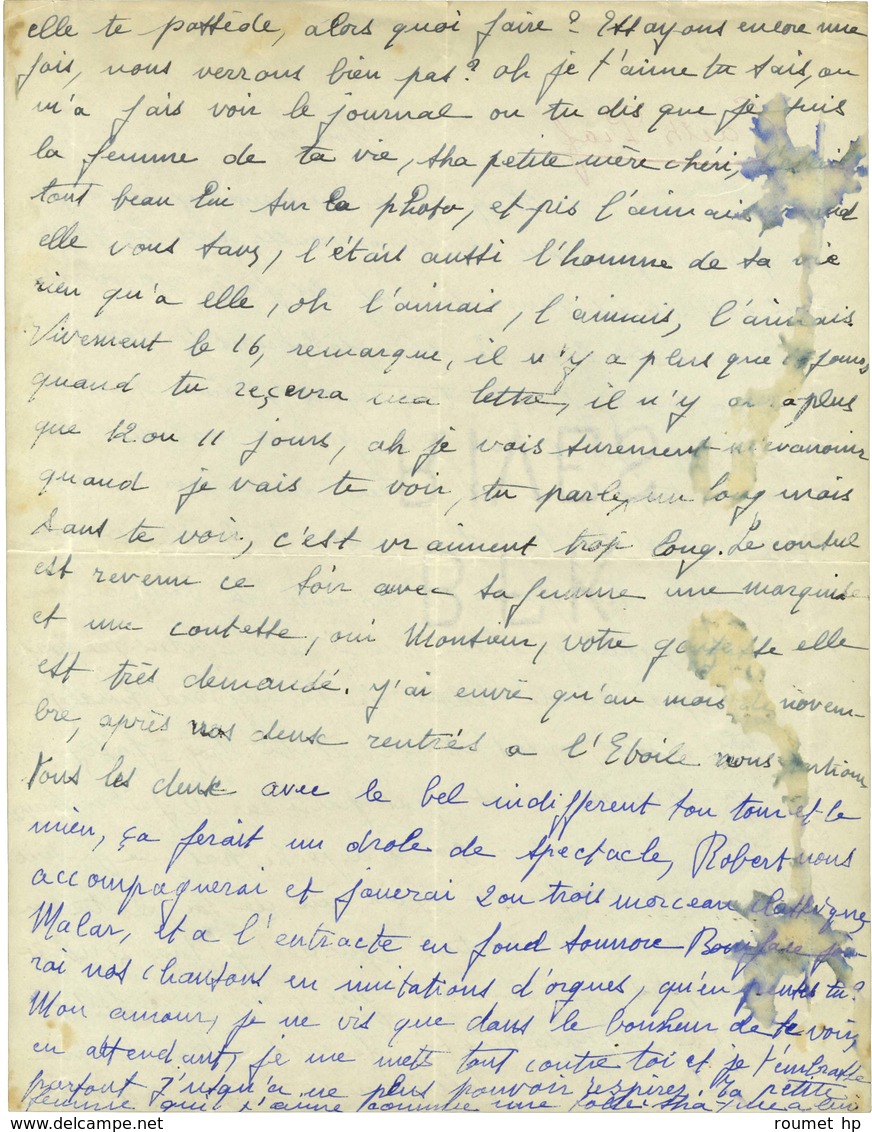 elle te possède, alors quoi faire ? Essayons encore une
fois, nous verrons bien pas ? oh je t'aime tu sais, on
m'a fais voir le journal ou tu dis que je suis
la femme de ta vie, sha petite mère chéri,
tout beau lui sur la photo, et pis l'aimais
elle vous savy, l'étais aussi l'homme de sa vie
rien qu'a elle, oh l'aimais, l'aimais, l'aimais.
Vivement le 16, remarque, il n'y a plus que jours,
quand tu reçevra ma lettre, il n'y aura plus
que 12 ou 11 jours, ah je vais surement m'évanouir
quand je vais te voir, tu parle, un long mois
sans te voir, c'est vraiment trop long. Le consul
est revenu ce soir avec sa femme une marquise
et une contesse, oui Monsieur, votre elle
est très demandé. J'ai envie qu'au mois de novem-
bre, après nos deux rentrés a l'Etoile nous partions
tous les deux avec le bel indifferent ton tour et le
mien, ça ferait un drole de spectacle, Robert nous
accompagnerai et jouerai 2 ou trois morceau classique,
Malar, et a l'entracte en fond sonnore Boniface jou-
rai nos chansons en imitations d'orgues, qu'en penses tu ?
Mon amour, je ne vis que dans le bonheur de te voir,
en attendant, je me mets tout contre toi et je t'embrasse
partout j'usqu'a ne plus pouvoir respirer, Ta petite
femme qui t'aime comme une folle. sha
roumet hp